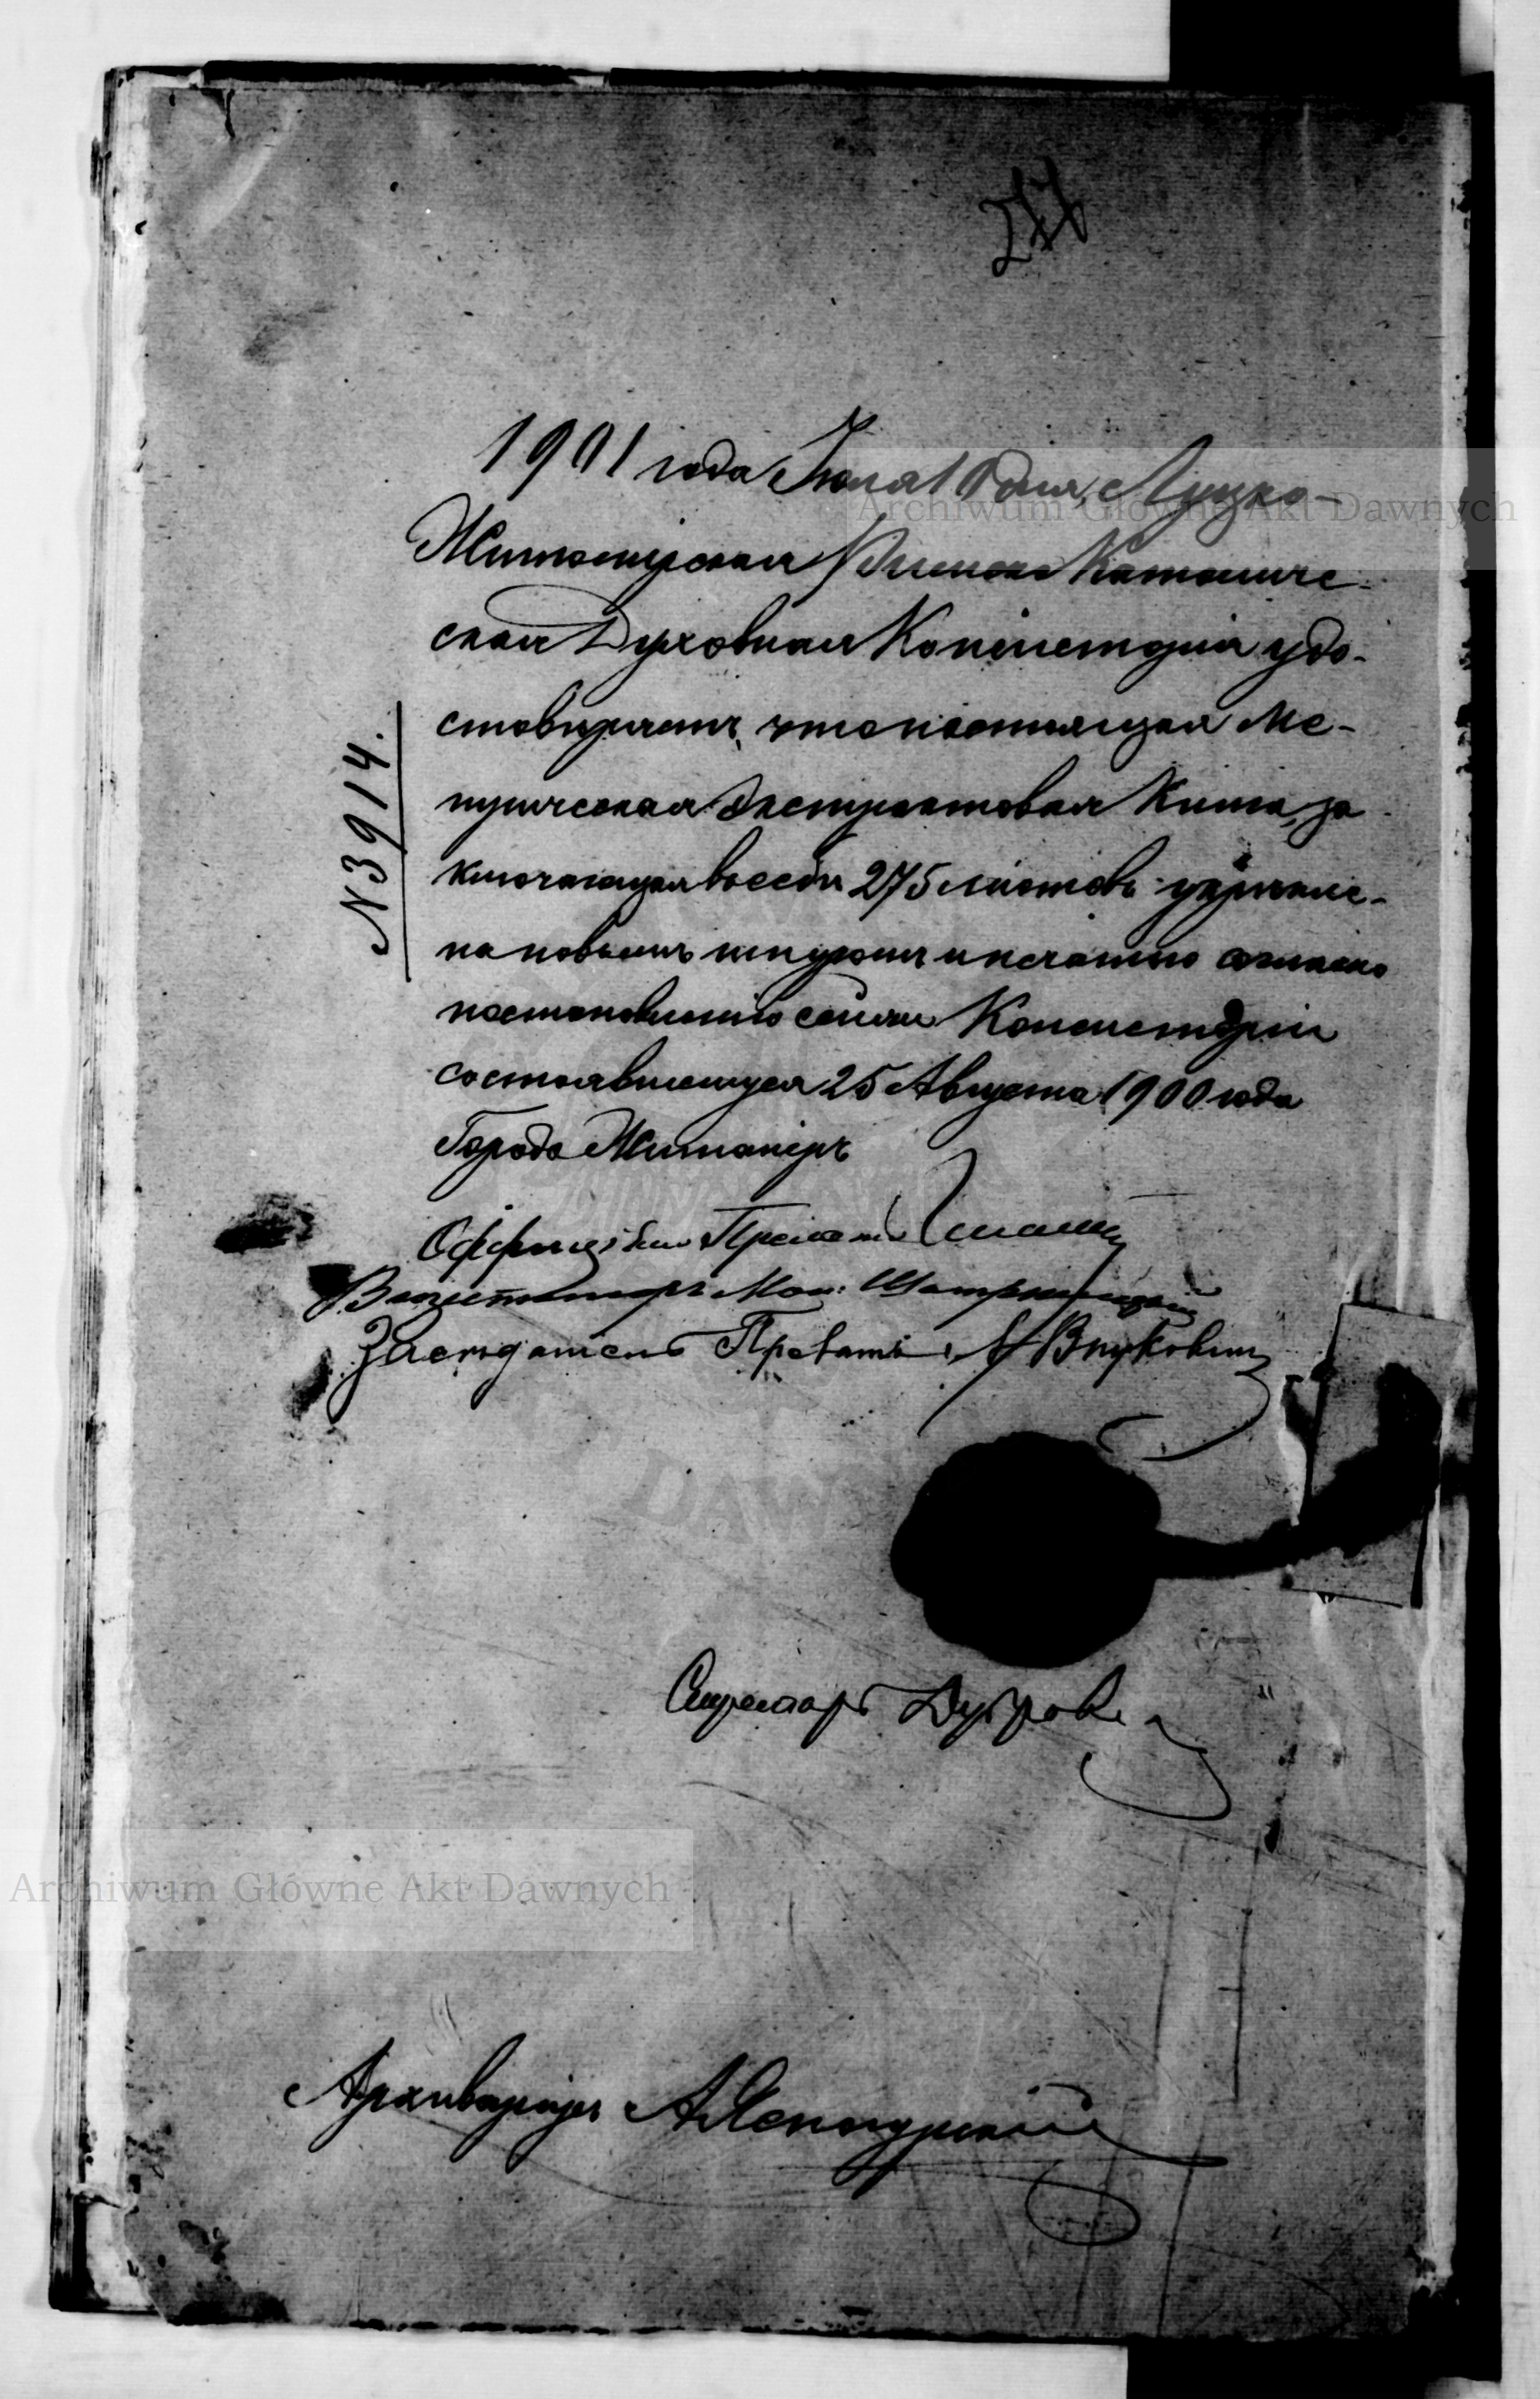 1901 года Іюля 10 дня, Луцко-
Житомірская Римско Католиче-
ская Духовная Консисторія удо-
стовѣряетъ, что настоящая Ме-
трическая Экстрактовая Книга, за
ключающая въ себѣ 275 листовъ укрѣпле-
на новымъ шнуромъ и печатью согласно
постановленію самои Консисторіи
состоявшемуся 25 Августа 1900 года
Городъ Житоміръ
№ 3914.
Оффиціалъ Прелатъ
Визитаторъ Мон:
Засѣдатель Прелатъ
Секретарь
Архиваріусъ
Archiwum Główne Akt Dawnych
Archiwum Główne Akt Dawnych